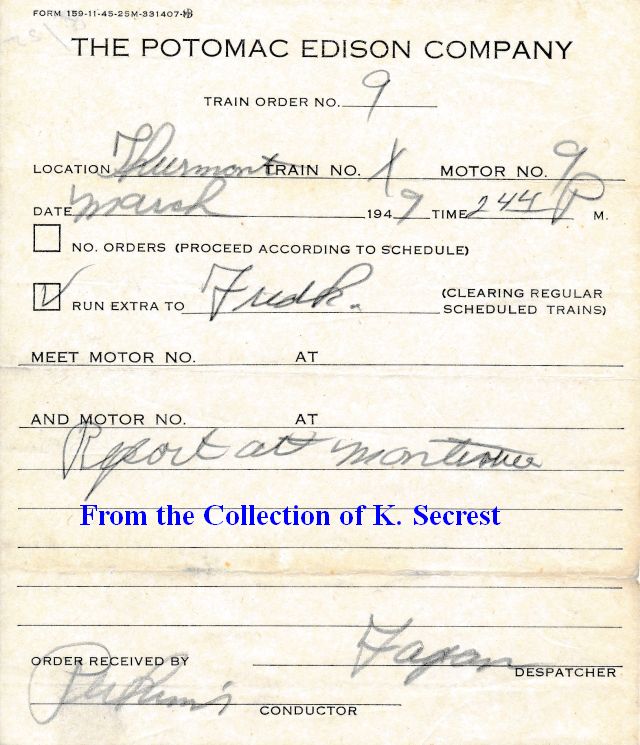 FORM 159-11-45-25M-331407-
THE POTOMAC EDISON COMPANY
TRAIN ORDER NO. 9
LOCATION Thurmont TRAIN NO. X MOTOR NO. 9
DATE March 1947 TIME 244 P M.
NO. ORDERS (PROCEED ACCORDING TO SCHEDULE)
RUN EXTRA TO Fredk. (CLEARING REGULAR
SCHEDULED TRAINS)
MEET MOTOR NO. AT
AND MOTOR NO. AT
Report at Montevue
From the Collection of K. Secrest
ORDER RECEIVED BY
Fagan DESPATCHER
CONDUCTOR